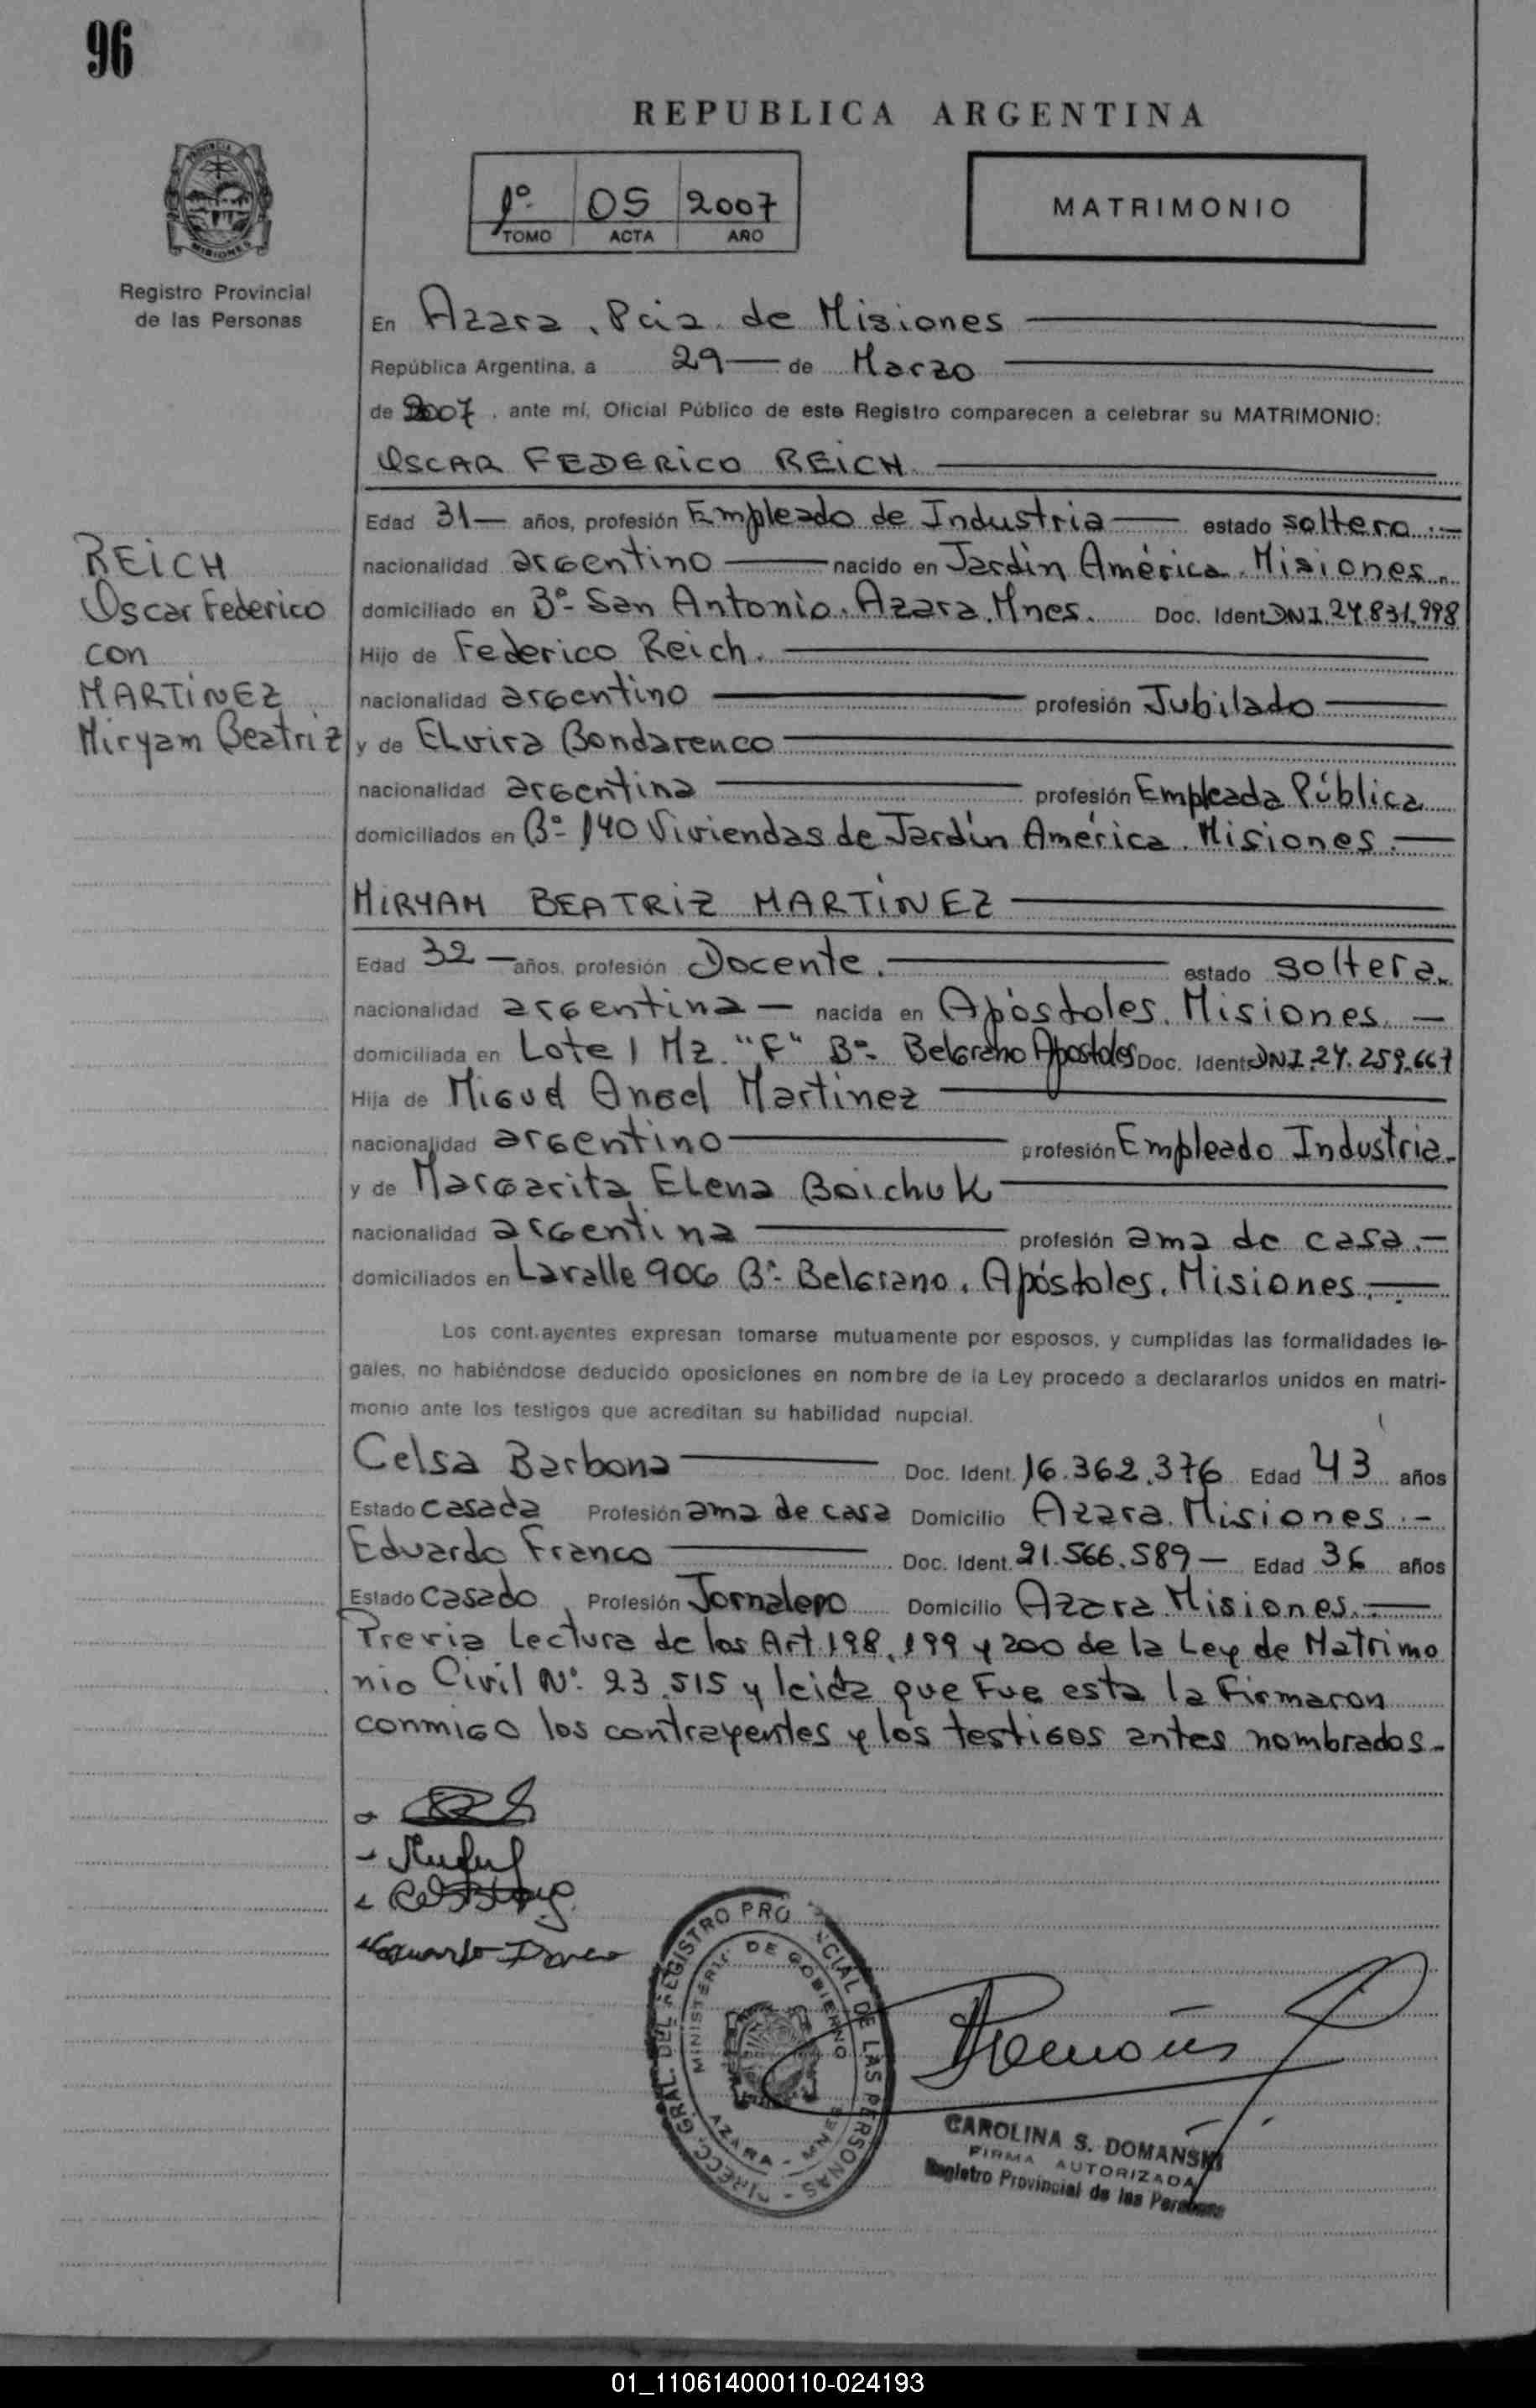 96
REPUBLICA ARGENTINA
PROVINCIA
MISIONES
Registro Provincial
de las Personas
1º 05 2007
TOMO ACTA AÑO
MATRIMONIO
En Azara, Pcia. de Misiones
República Argentina, a 29 de Marzo
de 2007, ante mí, Oficial Público de este Registro comparecen a celebrar su MATRIMONIO:
OSCAR FEDERICO REICH
Edad 31 años, profesión Empleado de Industria estado soltero.
REICH
Oscar Federico
con
MARTÍNEZ
Miryam Beatriz
nacionalidad argentino nacido en Jardín América. Misiones.
domiciliado en Bº San Antonio. Azara. Mnes. Doc. Ident DNI. 24.831.998
Hijo de Federico Reich.
nacionalidad argentino profesión Jubilado
y de Elvira Bondarenco
nacionalidad argentina profesión Empleada Pública
domiciliados en Bº 140 Viviendas de Jardín América. Misiones.
MIRYAM BEATRIZ MARTÍNEZ
Edad 32 años, profesión Docente. estado soltera.
nacionalidad argentina nacida en Apóstoles. Misiones.
domiciliada en Lote 1 Mz. "F" Bº Belgrano Apostoles Doc. Ident DNI. 24.259.667
Hija de Miguel Angel Martinez
nacionalidad argentino profesión Empleado Industria.
y de Margarita Elena Boichuk
nacionalidad argentina profesión ama de casa.
domiciliados en Lavalle 906 Bº Belgrano. Apóstoles. Misiones.
Los cont.ayentes expresan tomarse mutuamente por esposos, y cumplidas las formalidades le-
gales, no habiéndose deducido oposiciones en nombre de la Ley procedo a declararlos unidos en matri-
monio ante los testigos que acreditan su habilidad nupcial.
Celsa Barbona Doc. Ident. 16.362.376 Edad 43 años
Estado casada Profesión ama de casa Domicilio Azara. Misiones.
Eduardo Franco Doc. Ident. 21.566.589 Edad 36 años
Estado casado Profesión Jornalero Domicilio Azara Misiones.
Previa lectura de los Art. 198, 199 y 200 de la Ley de Matrimo
nio Civil Nº 23.515 y leida que fue esta la firmaron
conmigo los contrayentes y los testigos antes nombrados.
DIRECC. GRAL. DEL REGISTRO PRO NCIAL DE LAS PERSONAS
MINISTERIO DE GOBIERNO
AZARA - MNES
CAROLINA S. DOMANSKI
FIRMA AUTORIZADA
Registro Provincial de las Personas
01_110614000110-024193